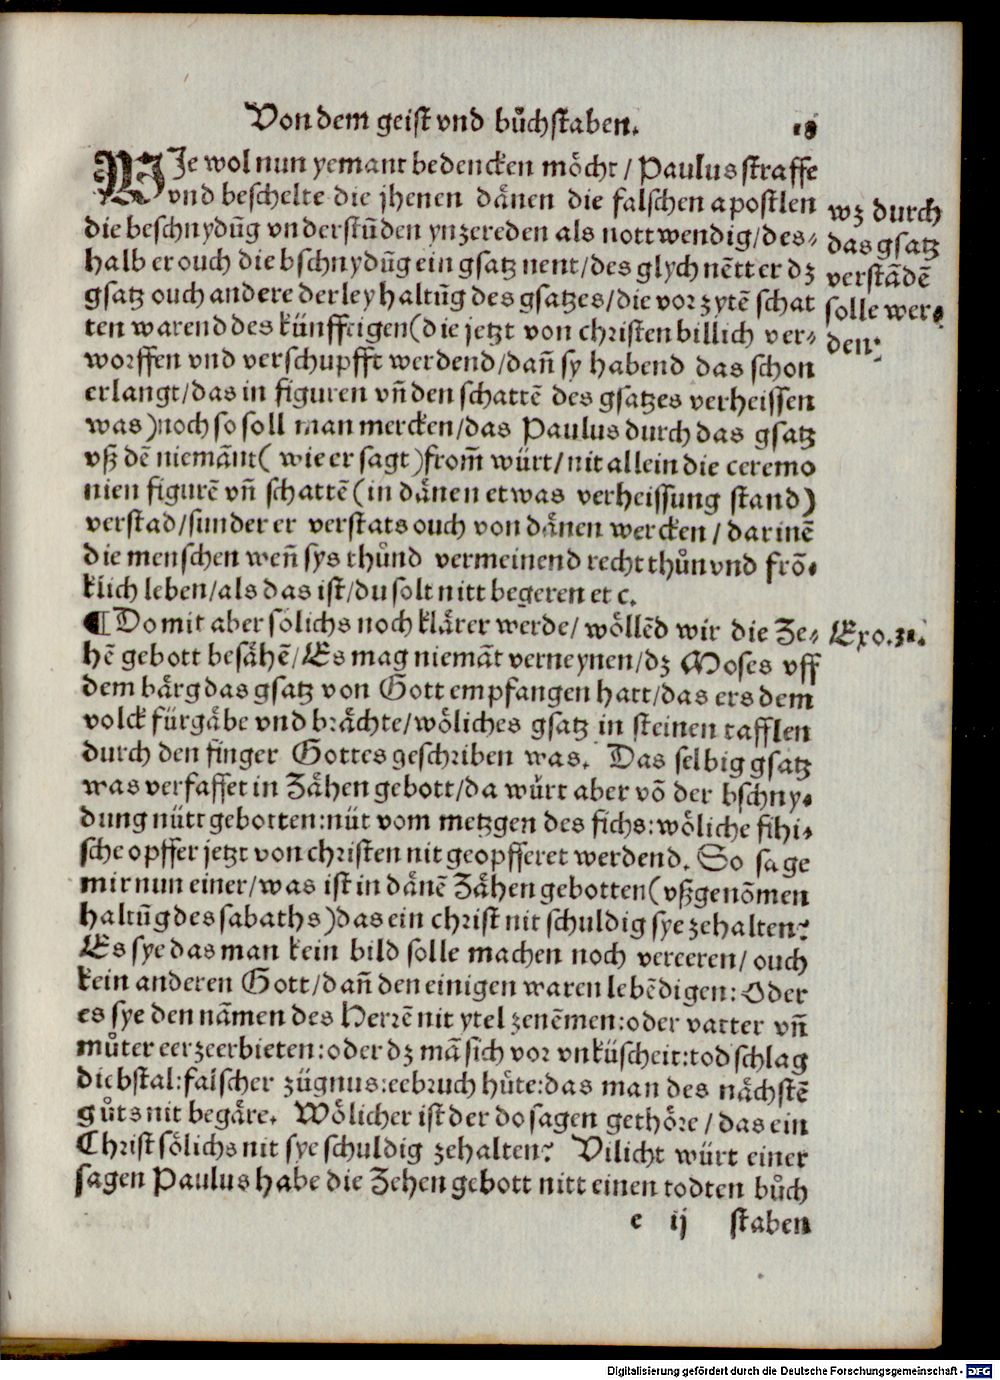 Von dem geist vnd bůchstaben. 18
WJe wol nun yemant bedencken möcht / Paulus straffe
vnd beschelte die jhenen dänen die falschen apostlen
die beschnydūg vnderstūden ynzereden als nottwendig/des⸗
halb er ouch die bschnydūg ein gsatz nent/des glych nētt er dz
gsatz ouch andere derley haltūg des gsatzes/die vor zytē schat
ten warend des künfftigen(die jetzt von christen billich ver⸗
worffen vnd verschupfft werdend/dañ sy habend das schon
erlangt/das in figuren vñ den schattē des gsatzes verheissen
was)noch so soll man mercken/das Paulus durch das gsatz
vß dē niemānt( wie er sagt)from̄ würt/nit allein die ceremo
nien figurē vñ schattē(in dänen etwas verheissung stand)
verstad/sunder er verstats ouch von dänen wercken / darinē
die menschen weñ sys thůnd vermeinend recht thůn vnd frō⸗
klich leben/als das ist/du solt nitt begeren et c.
¶ Domit aber sölichs noch klärer werde/ wöllēd wir die Ze⸗
hē gebott besähē/Es mag niemāt verneynen/dz Moses vff
dem bärg das gsatz von Gott empfangen hatt/das ers dem
volck fürgäbe vnd brächte/wöliches gsatz in steinen tafflen
durch den finger Gottes geschriben was. Das selbig gsatz
was verfasset in Zähen gebott/da würt aber vō der bschny⸗
dung nütt gebotten:nüt vom metzgen des fichs:wöliche fihi⸗
sche opffer jetzt von christen nit geopfferet werdend. So sage
mir nun einer/was ist in dänē Zähen gebotten(vßgenōmen
haltūg des sabaths)das ein christ nit schuldig sye zehalten?
Es sye das man kein bild solle machen noch vereeren/ ouch
kein anderen Gott/dañ den einigen waren lebēdigen: Oder
es sye den nāmen des Herrē nit ytel zenēmen:oder vatter vñ
můter eer zeerbieten:oder dz mā sich vor vnküscheit:todschlag
diebstal:falscher zügnus:eebruch hüte:das man des nächstē
gůts nit begäre. Wölicher ist der do sagen gethöre / das ein
Christ sölichs nit sye schuldig zehalten? Vilicht würt einer
sagen Paulus habe die Zehen gebott nitt einen todten bůch
e ij staben
wz durch
das gsatz
verstādē
solle wer⸗
den.
Exo.31.
Digitalisierung gefördert durch die Deutsche Forschungsgemeinschaft - DFG